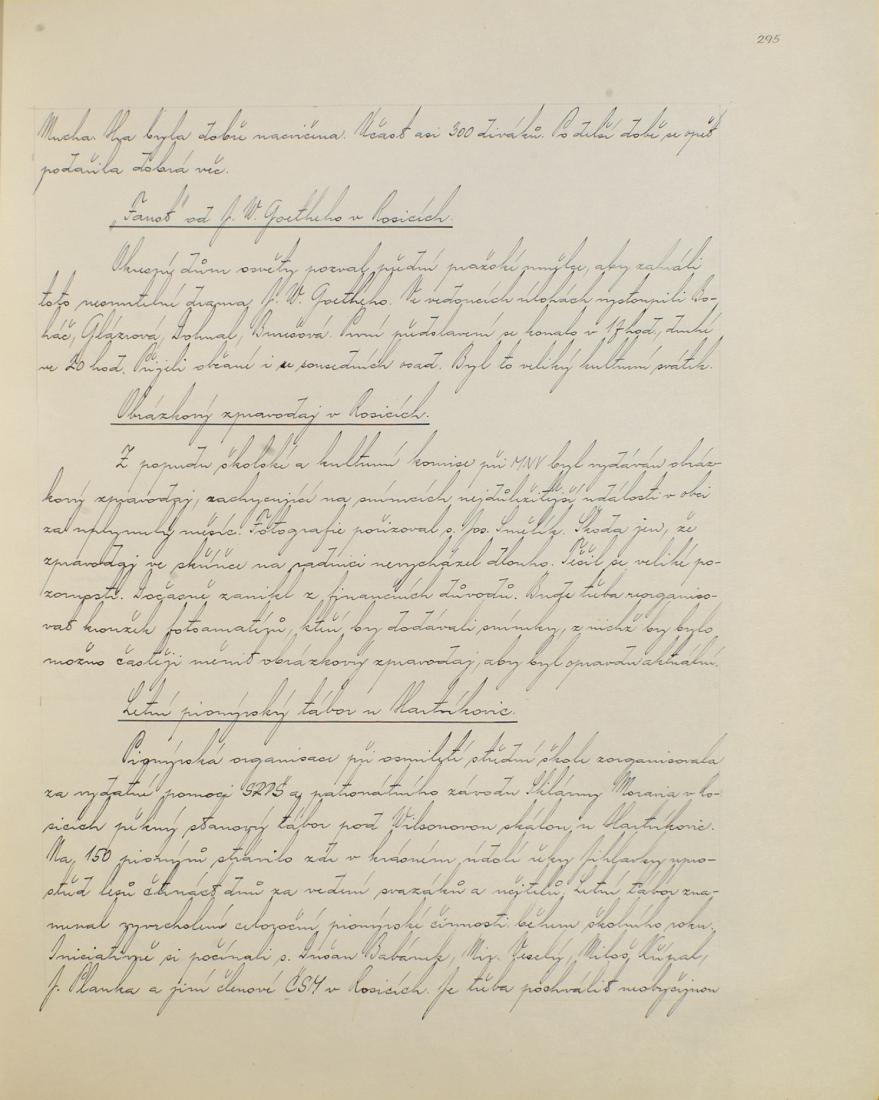 295
Mucha. Hra byla dobře nacvičena. Účast asi 300 diváků. Po delší době se opět
podařila dobrá věc.
„Faust" od J. W. Goetheho v Rosicích.
Okresní dům osvěty pozval přední pražské umělce, aby zahráli
toto nesmrtelné drama J. W. Goetheho. Ve vedoucích úlohách vystoupili Bo-
háč, Glázrová, Dohnal, Burešová. První představení se konalo v 17 hod., druhé
ve 20 hod. Přijeli občané i ze sousedních osad. Byl to veliký kulturní svátek.
Obrázkový zpravodaj v Rosicích.
Z popudu školské a kulturní komise při MNV byl vydáván obráz-
kový zpravodaj, zachycující na snímcích nejdůležitější události v obci
za uplynulý měsíc. Fotografie pořizoval s. Jos. Smělík. Škoda jen, že
zpravodaj ve skříňce na radnici nevycházel dlouho. Těšil se veliké po-
zornosti. Dočasně zanikl z finančních důvodů. Bude třeba reorganiso-
vat kroužek fotoamatérů, kteří by dodávali snímky, z nichž by bylo
možno častěji měnit obrázkový zpravodaj, aby byl opravdu aktuální.
Letní pionýrský tábor u Hartvíkovic.
Pionýrská organisace při osmileté střední škole zorganisovala
za vydatné pomoci SRPŠ a patronátního závodu Sklárny Moravia v Ro-
sicích pěkný stanový tábor pod Wilsonovou skálou u Hartvíkovic.
Na 150 pionýrů strávilo zde v krásném údolí řeky Jihlavky upro-
střed lesů čtrnáct dnů za vedení svazáků a učitelů. Letní tábor zna-
menal vyvrcholení celoroční pionýrské činnosti během školního roku.
Iniciativně si počínali s. Dušan Babánek, Mir. Veselý, Miloš Křípal,
J. Planka a jiní členové ČSM v Rosicích. Je třeba pochválit neobyčejnou